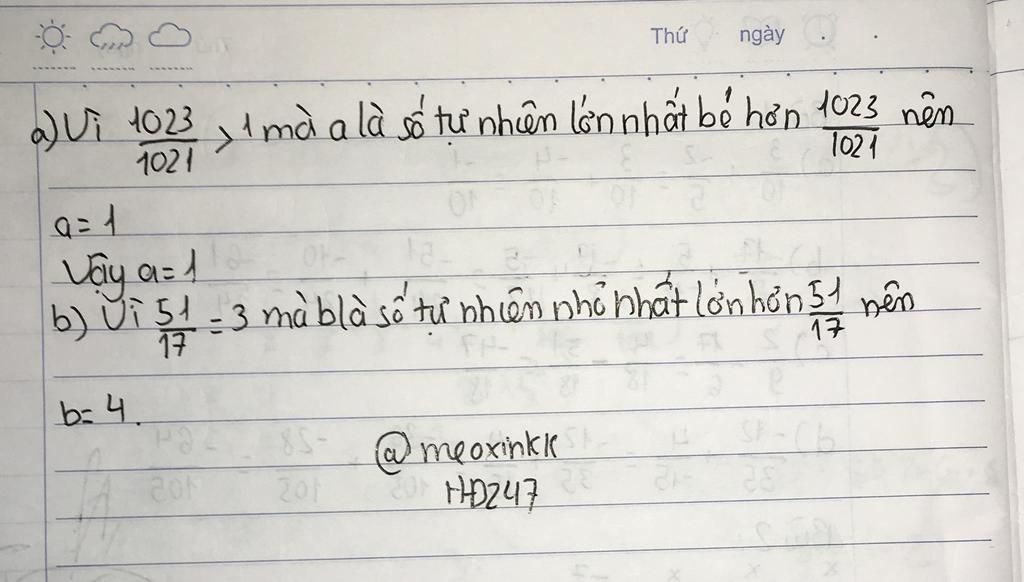 Thứ ngày
a) Vì 1023/1021 > 1 mà a là số tự nhiên lớn nhất bé hơn 1023/1021 nên
a = 1
Vậy a = 1
b) Vì 51/17 = 3 mà b là số tự nhiên nhỏ nhất lớn hơn 51/17 nên
b = 4.
@meoxinkk
HD247